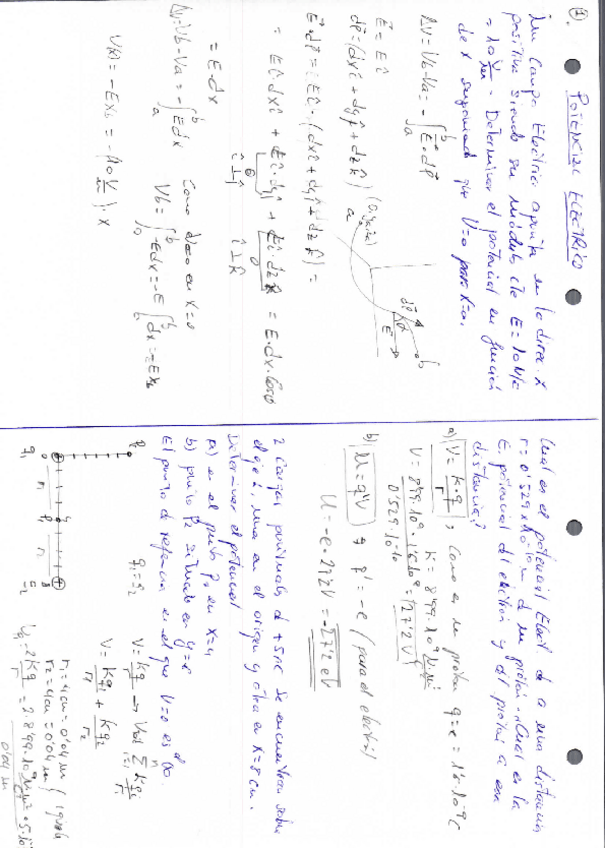 ① POTENCIAL ELÉCTRICO
Un Campo Eléctrico apunta en la direc. x
positiva siendo su módulo de E = 10 N/C
= 10 V/m. Determinar el potencial en función
de x suponiendo que V=0 para x=0.
ΔV = Vb - Va = -∫ₐᵇ E⃗·dℓ⃗
E⃗ = E î
dℓ⃗ = (dx î + dy ĵ + dz k̂)
a
dℓ⃗
E⃗
b
E⃗·dℓ⃗ = E î · (dx î + dy ĵ + dz k̂) =
= E î·dx î + E î·dy ĵ + E î·dz k̂ = E·dx·cos0
0
0
î ⊥ ĵ
î ⊥ k̂
= E·dx
ΔV = Vb - Va = -∫ₐᵇ E dx
en x=0
Vb = ∫₀ᵇ -E dx = -E ∫₀ᵇ dx = -E x
V(x) = -E x = -(10 V/m)·x
Cual es el potencial Eléct. a una distancia
r = 0'529 x 10⁻¹⁰ m de un protón. Cual es la
E. potencial del electrón y del protón a esa
distancia?
a) V = k·q/r ; Como es un protón q = e = 1'6·10⁻¹⁹ C
K = 8'99·10⁹
V = 8'99·10⁹ · 1'6·10⁻¹⁹ / 0'529·10⁻¹⁰ = 27'2 V
b) U = q'V → q' = -e (para el electrón)
U = -e·27'2 V = -27'2 eV
2 Cargas puntuales de +5nC se encuentran sobre
el eje x, una en el origen y otra en x=8 cm.
Determinar el potencial
a) en el punto P₁ en x=4
b) punto P₂ situado en y=6
El punto de referencia en el que V=0 es el ∞.
P₂
q₁
P₁
r₁
r₂
V = kq/r
V = kq₁/r₁ + kq₂/r₂
r₁ = 4cm = 0'04 m
r₂ = 4cm = 0'04 m
0'04 m